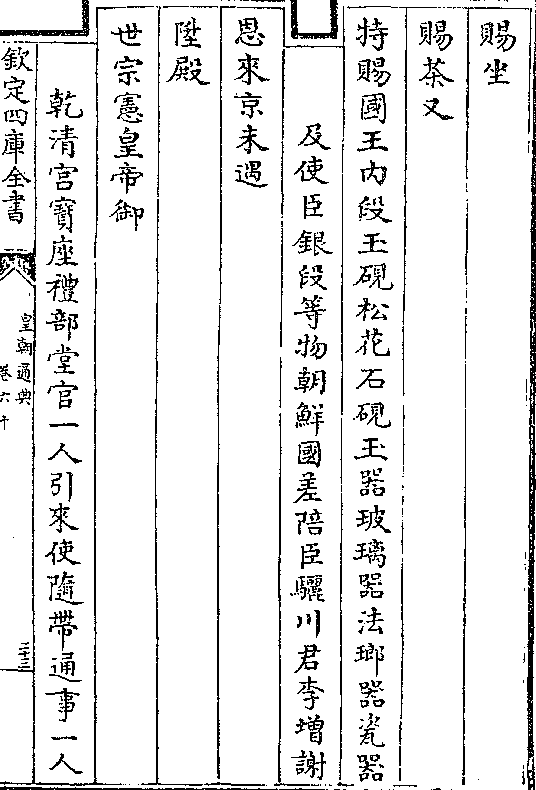 賜坐
賜茶又
特賜國王内段玉硯松花石硯玉器玻璃器法瑯器瓷器
及使臣銀段等物朝鮮國差陪臣驪川君李增謝
恩來京未遇
陞殿
世宗憲皇帝御
乾清宫寳座禮部堂官一人引來使隨帶通事一人
欽定四庫全書
皇朝通典
卷六十
二十三